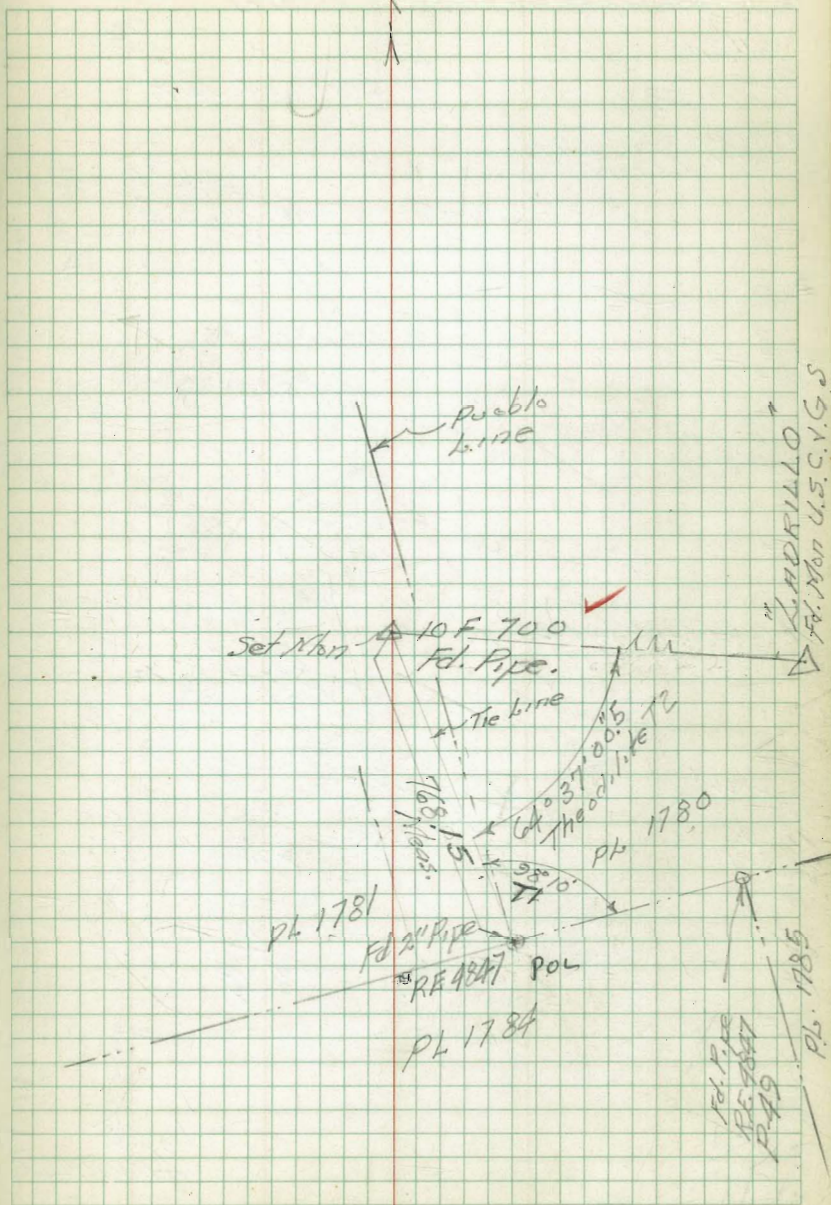 Pueblo
Line
"LADRILLO"
Fd. Mon U.S.C.&G.S
Set Mon
10 F 700
Fd. Pipe.
Tie Line
64° 37' 00.5"
Theodilite T2
768.15
Meas.
98° 10'
PL 1780
PL 1781
Fd 2" Pipe
RE 4847
POL
PL 1784
Fd. Pipe
R.E. 4847
P-49
PL. 1785